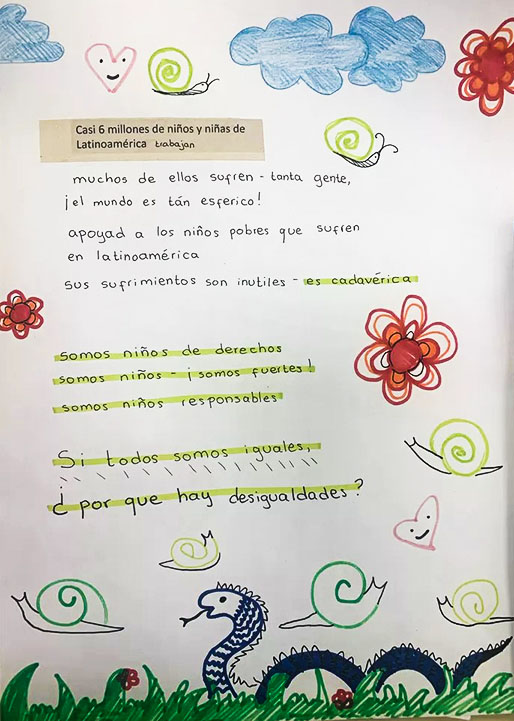 Casi 6 millones de niños y niñas de
Latinoamérica trabajan
muchos de ellos sufren - tanta gente,
¡el mundo es tán esferico!
apoyad a los niños pobres que sufren
en latinoamérica
sus sufrimientos son inutiles - es cadavérica
somos niños de derechos
somos niños - ¡somos fuertes!
somos niños responsables
Si todos somos iguales,
¿por que hay desigualdades?